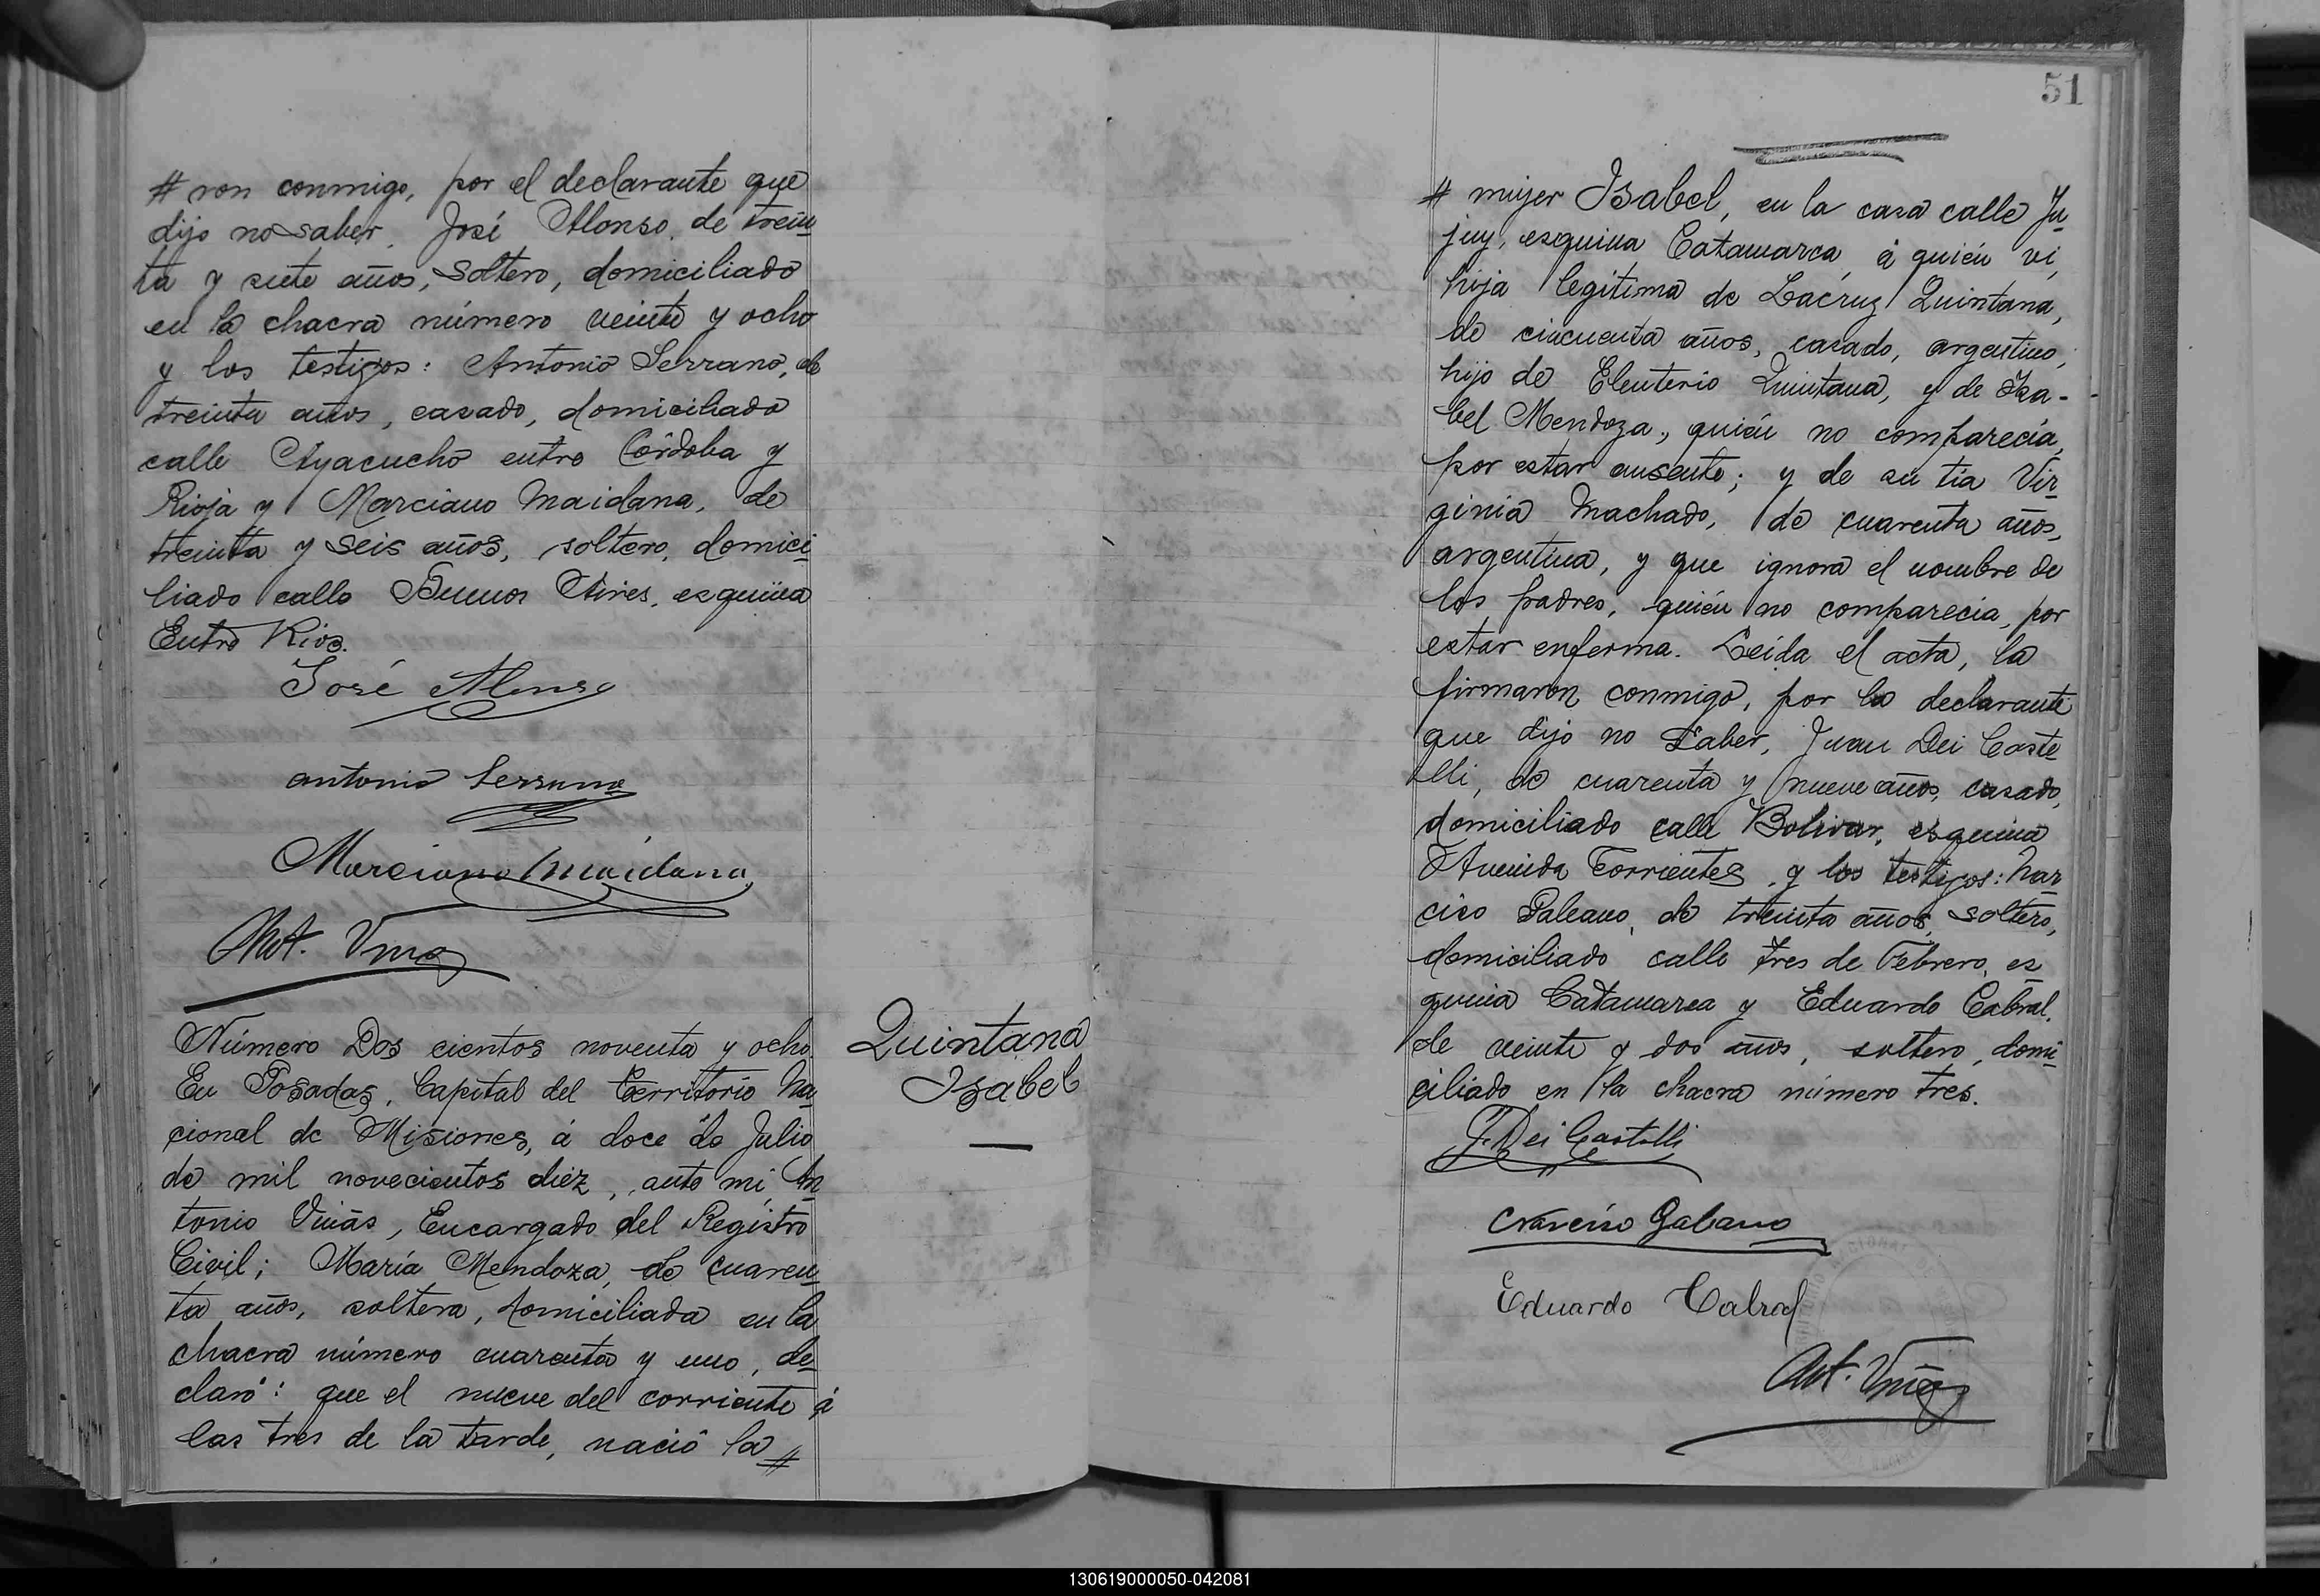 # ron conmigo, por el declarante que
dijo no saber, José Alonso, de trein
ta y siete años, soltero, domiciliado
en la chacra número veinte y ocho
y los testigos: Antonio Serrano, de
treinta años, casado, domiciliado
calle Ayacucho entre Córdoba y
Rioja y Marciano Maidana, de
treinta y seis años, soltero, domici
liado calle Buenos Aires, esquina
Entre Rios.
José Alonso
Antonio Serrano
Marciano Maidana
Ant. Viñas
Número Dos cientos noventa y ocho
En Posadas, Capital del Territorio Na
cional de Misiones, á doce de Julio
de mil novecientos diez, ante mi, An
tonio Viñas, Encargado del Registro
Civil; María Mendoza, de cuaren
ta años, soltera, domiciliada en la
chacra número cuarenta y uno, de
claró: que el nueve del corriente á
las tres de la tarde, nació la #
Quintana
Isabel
51
# mujer Isabel, en la casa calle Ju
juy, esquina Catamarca, á quién vi,
hija legítima de Lacruz Quintana,
de cincuenta años, casado, argentino,
hijo de Eleuterio Quintana, y de Isa-
bel Mendoza, quién no comparecia,
por estar ausente; y de su tia Vir
ginia Machado, de cuarenta años,
argentina, y que ignora el nombre de
los padres, quién no comparecia, por
estar enferma. Leida el acta, la
firmaron conmigo, por la declarante
que dijo no saber, Juan Dei Caste
lli, de cuarenta y nueve años, casado,
domiciliado calle Bolivar, esquina
Avenida Corrientes, y los testigos: Nar
ciso Galeano, de treinta años, soltero,
domiciliado calle tres de Febrero, es
quina Catamarca y Eduardo Cabral,
de veinte y dos años, soltero, domi
ciliado en la chacra número tres.
J. Dei Castelli
Narciso Galeano
Eduardo Cabral
Ant. Viñas
130619000050-042081